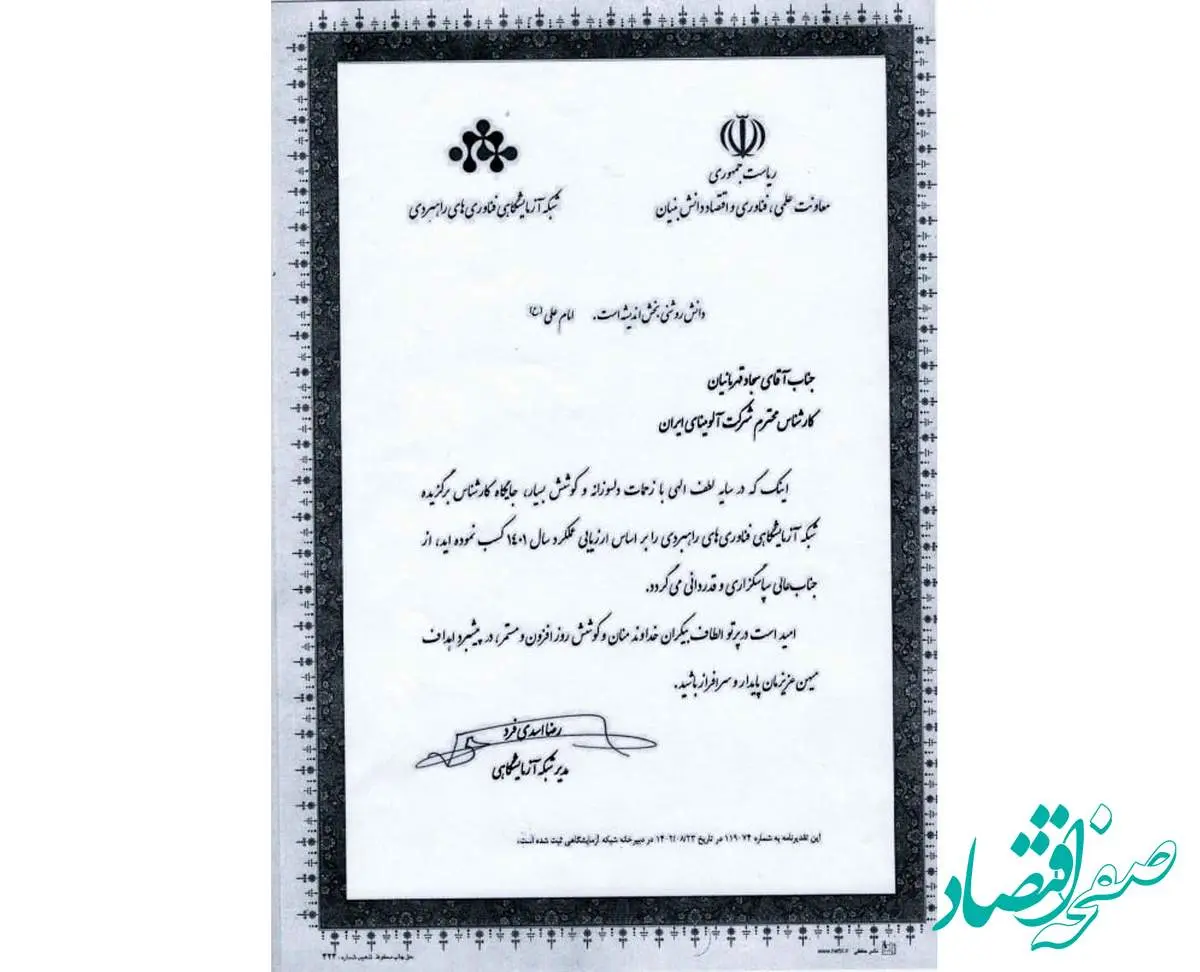 ریاست جمهوری
معاونت علمی، فناوری و اقتصاد دانش بنیان
شبکه آزمایشگاهی فناوری های راهبردی
دانش روشنی بخش اندیشه است. امام علی (ع)
جناب آقای سجاد قهرمانیان
کارشناس محترم شرکت آلومینای ایران
اینک که در سایه لطف الهی با زحمات دلسوزانه و کوشش بسیار، جایگاه کارشناس برگزیده
شبکه آزمایشگاهی فناوری های راهبردی را بر اساس ارزیابی عملکرد سال ۱۴۰۱ کسب نموده اید، از
جناب عالی سپاسگزاری و قدردانی می گردد.
امید است در پرتو الطاف بیکران خداوند منان و کوشش روز افزون و مستمر، در پیشبرد اهداف
میهن عزیزمان پایدار و سرافراز باشید.
رضا اسدی فرد
مدیر شبکه آزمایشگاهی
این تقدیرنامه به شماره ۱۱۹۰۷۴ در تاریخ ۱۴۰۲/۰۸/۲۳ در دبیرخانه شبکه آزمایشگاهی ثبت شده است.
صفحه اقتصاد